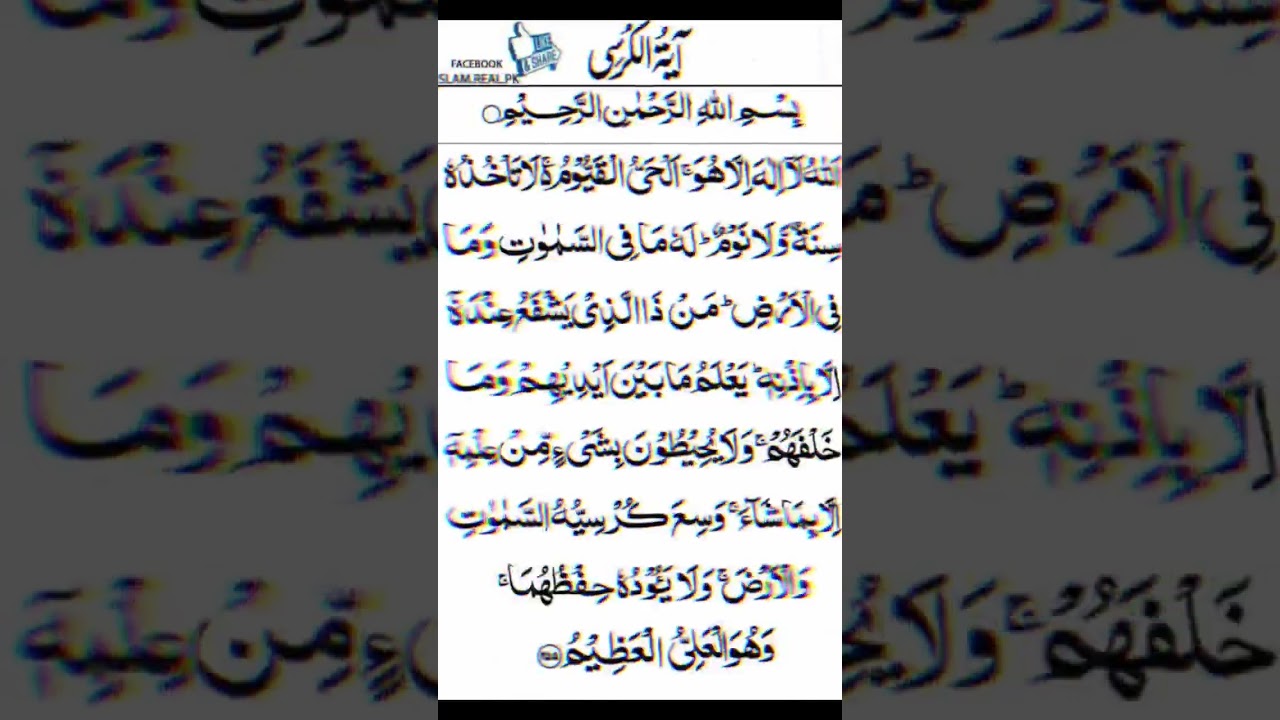 آيَةُ الكُرْسِى
LIKE
& SHARE
FACEBOOK
SLAM.REAL.PK
بِسْمِ اللهِ الرَّحْمٰنِ الرَّحِيْمِ
اَللهُ لَآ اِلٰهَ اِلَّا هُوَ ۚ اَلْحَىُّ الْقَيُّوْمُ ەۚ لَا تَاْخُذُهٗ
سِنَةٌ وَّلَا نَوْمٌ ؕ لَهٗ مَا فِى السَّمٰوٰتِ وَمَا
فِى الْاَرْضِ ؕ مَنْ ذَا الَّذِىْ يَشْفَعُ عِنْدَهٗۤ
اِلَّا بِاِذْنِهٖ ؕ يَعْلَمُ مَا بَيْنَ اَيْدِيْهِمْ وَمَا
خَلْفَهُمْ ۚ وَلَا يُحِيْطُوْنَ بِشَىْءٍ مِّنْ عِلْمِهٖۤ
اِلَّا بِمَا شَآءَ ۚ وَسِعَ كُرْسِيُّهُ السَّمٰوٰتِ
وَالْاَرْضَ ۚ وَلَا يَـُٔوْدُهٗ حِفْظُهُمَا ۚ
وَهُوَ الْعَلِىُّ الْعَظِيْمُ ﴿۲۵۵﴾